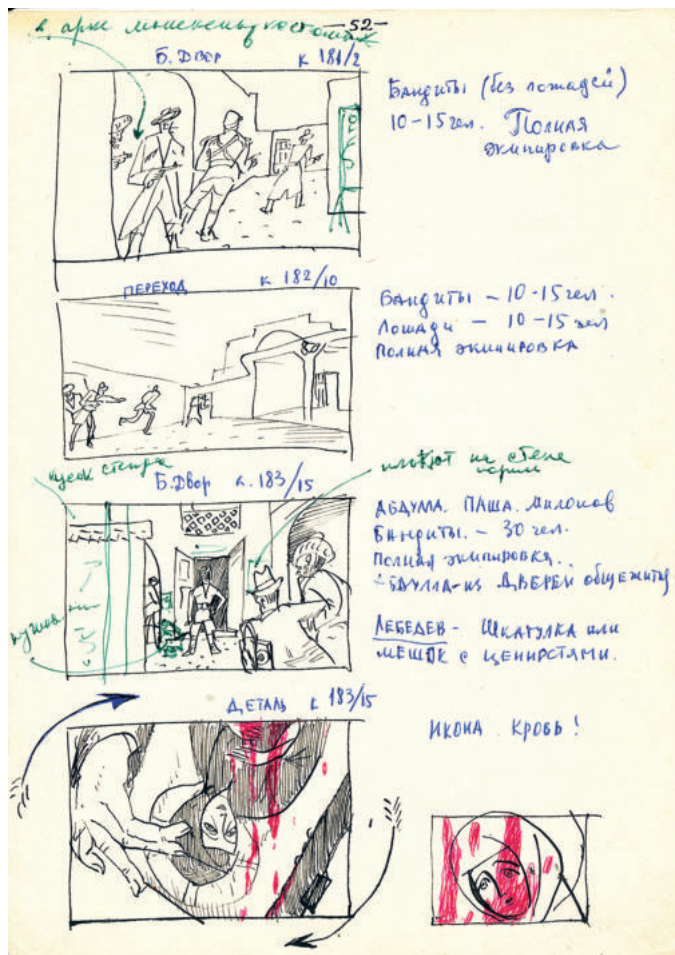 в арке
-52-
Б. Двор к 181/2
Бандиты (без лошадей)
10-15 чел. Полная
экипировка
ПЕРЕХОД к 182/10
Бандиты - 10-15 чел.
Лошади - 10-15 чел
Полная экипировка
кусок стенда
Б. Двор к. 183/15
плакат на стене
АБДУЛЛА. ПАША. Милонов
Бандиты. - 30 чел.
Полная экипировка..
АБДУЛЛА-ИЗ ДВЕРЕЙ общежития
ЛЕБЕДЕВ - Шкатулка или
МЕШОК с ЦЕННОСТЯМИ.
ДЕТАЛЬ к 183/15
ИКОНА. КРОВЬ!